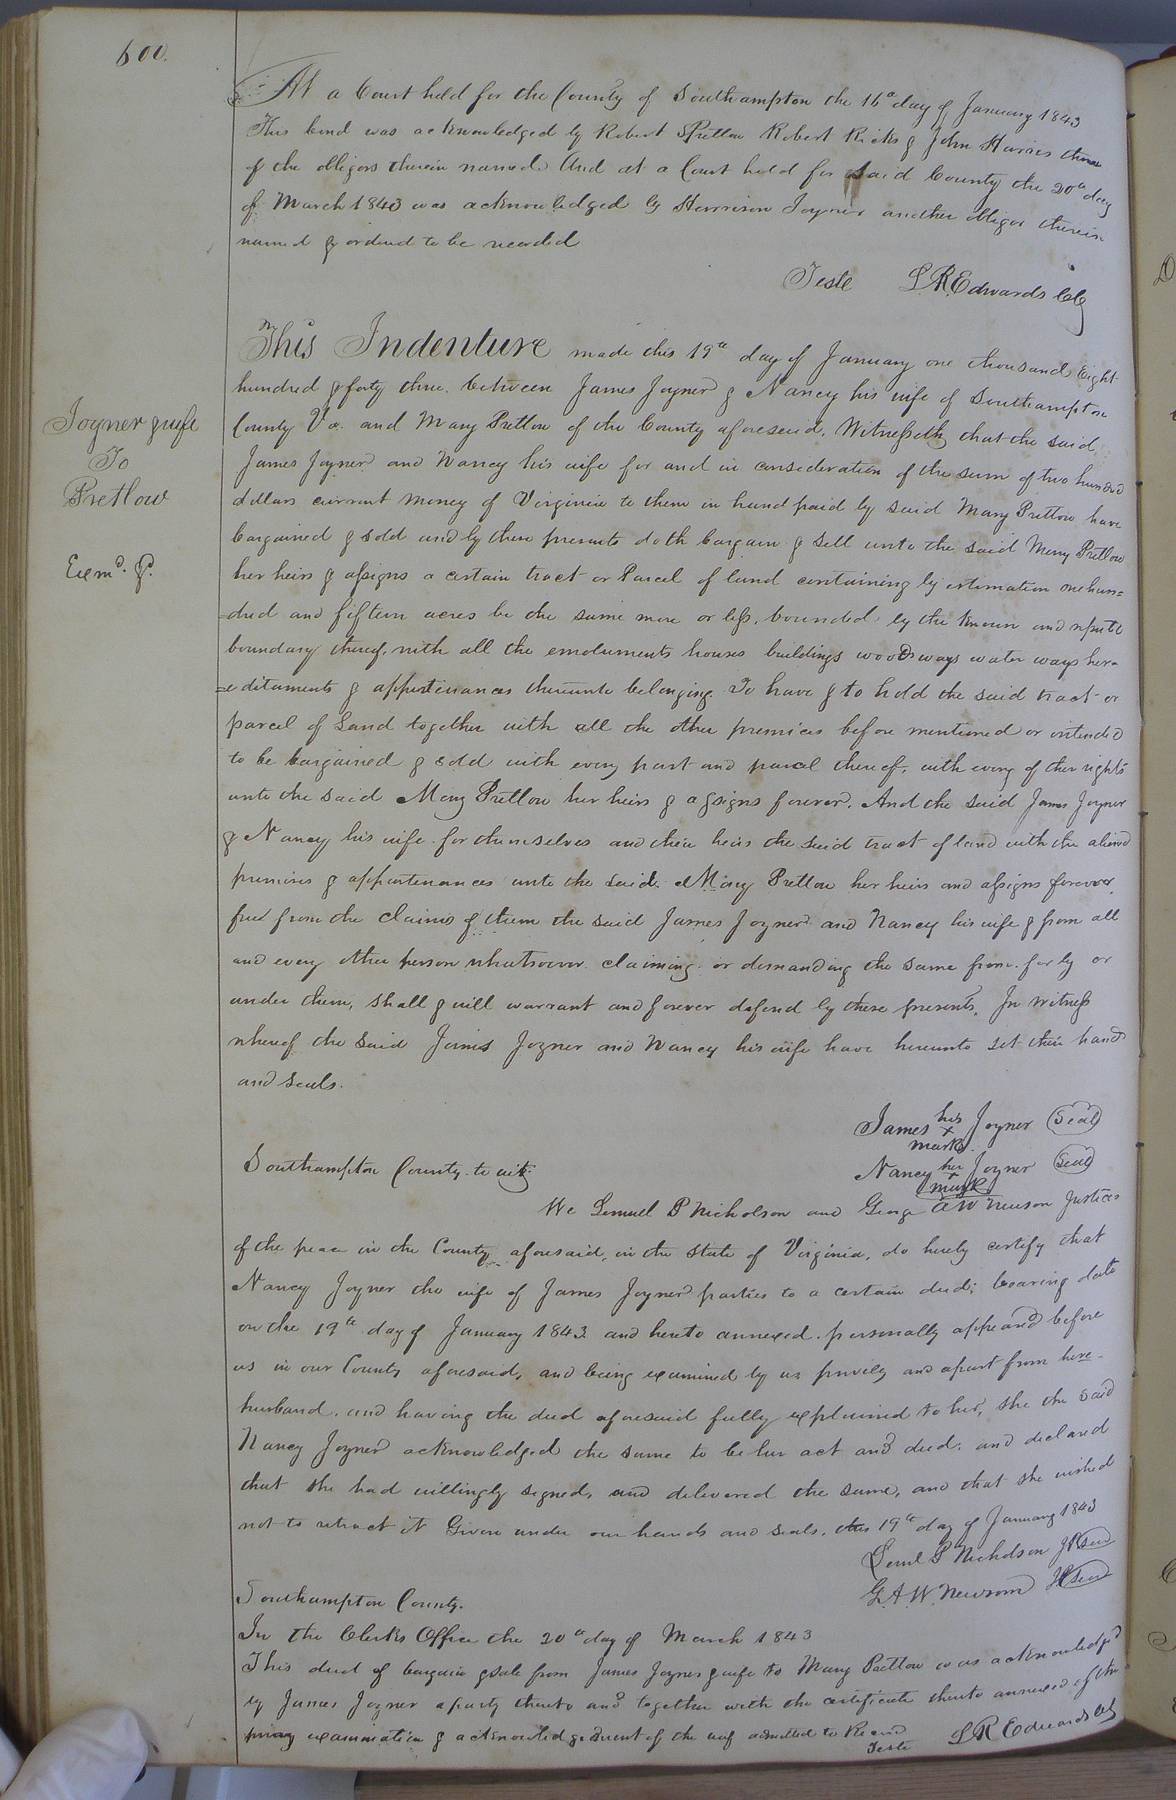 600.
At a Court held for the County of Southampton the 16th day of January 1843
This bond was acknowledged by Robert S Pretlow Robert Ricks & John Harris three
of the obligors therein named. And at a Court held for said County the 20th day
of March 1843 was acknowledged by Harrison Joyner another obligor therein
named & ordered to be recorded
Teste L R Edwards Clk
Joyner & wife
To
Pretlow
Exmd. &d.
This Indenture made this 19th day of January one thousand Eight
hundred & forty three. between James Joyner & Nancy his wife of Southampton
County Va. and Mary Pretlow of the County aforesaid. Witnesseth, that the said
James Joyner and Nancy his wife for and in consideration of the sum of two hundred
dollars current money of Virginia to them in hand paid by said Mary Pretlow have
bargained & sold and by these presents doth bargain & sell unto the said Mary Pretlow
her heirs & assigns a certain tract or Parcel of land containing by estimation one hun=
=dred and fifteen acres be the same more or less, bounded by the known and repute
boundary thereof, with all the emoluments houses buildings woods ways water ways her=
=editaments & appertenances thereunto belonging To have & to hold the said tract or
parcel of Land together with all the other premises before mentioned or intended
to be bargained & sold with every part and parcel thereof, with every of their rights
unto the said Mary Pretlow her heirs & assigns forever. And the said James Joyner
& Nancy his wife for themselves and their heirs the said tract of land with the aliened
premises & appurtenances unto the said Mary Pretlow her heirs and assigns forever,
free from the claims of them the said James Joyner and Nancy his wife & from all
and every other person whatsoever claiming or demanding the same from, for by or
under them, shall & will warrant and forever defend by these presents, In Witness
whereof the said James Joyner and Nancy his wife have hereunto set their hands
and seals.
James his x mark Joyner (Seal)
Nancy her + mark Joyner (Seal)
Southampton County to wit:
We Lemuel P Nicholson and George A W Newsom Justices
of the peace in the County aforesaid, in the State of Virginia, do hereby certify that
Nancy Joyner the wife of James Joyner parties to a certain deed, bearing date
on the 19th day of January 1843 and hereto annexed. personally appeared before
us in our County aforesaid, and being examined by us privily and apart from here
husband. and having the deed aforesaid fully explained to her, she the said
Nancy Joyner acknowledged the same to be her act and deed, and declared
that she had willingly signed, and delivered the same, and that she wished
not to retract it Given under our hands and seals, this 19th day of January 1843
Leml P Nicholson JP Seal
G. A. W. Newsom JP Seal
Southampton County.
In the Clerks Office the 20th day of March 1843
This deed of bargain & sale from James Joyner & wife to Mary Pretlow was acknowledged
by James Joyner a party thereto and together with the certificate thereto annexed of the
privy examination & acknowledgement of the wife admitted to Record
Teste L R Edwards Clk